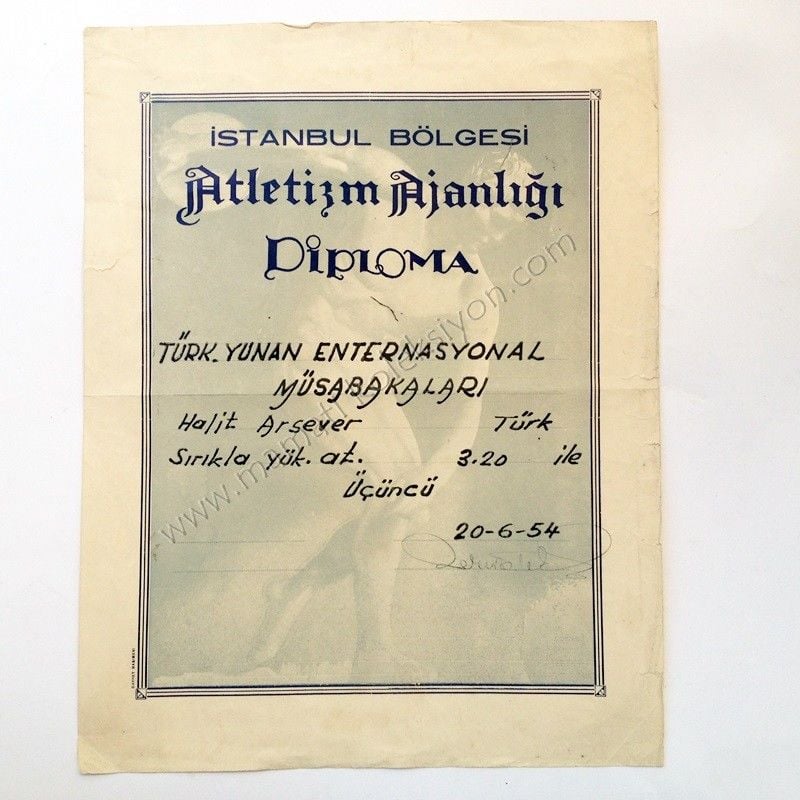 İSTANBUL BÖLGESİ
Atletizm Ajanlığı
DİPLOMA
TÜRK. YUNAN ENTERNASYONAL
MÜSABAKALARI
Halit Arsever Türk
Sırıkla yük. at. 3.20 ile
Üçüncü
20-6-54